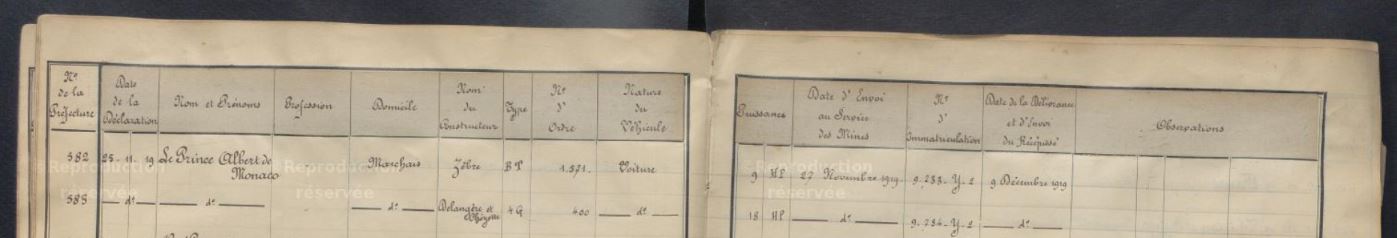 Nº de la Préfecture | Date de la Déclaration | Nom et Prénoms | Profession | Domicile | Nom du Constructeur | Type | Nº d' Ordre | Nature du Véhicule | Puissance | Date d' Envoi au Service des Mines | Nº d' Immatriculation | Date de la Délivrance et d'Envoi du Récépissé | Observations
582 | 25 - 11 - 19 | Le Prince Albert de Monaco | Marchais | Zèbre | 1.571. | Voiture | 9 HP | 27 Novembre 1919 | 9.233 - Y-2 | 9 Décembre 1919
583 | dº | dº | dº | Delaugère et | 4 G | 400 | dº | 18 HP | dº | 9.234 - Y-2 | dº
Reproduction réservée
Reproduction réservée
Reproduction réservée